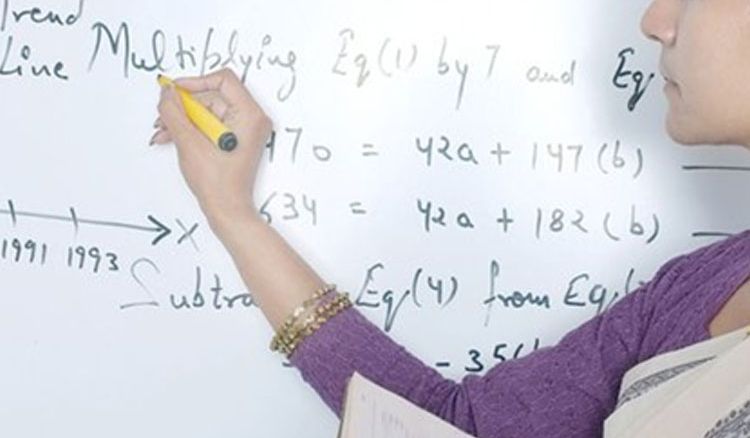 Trend
Line Multiplying Eq(1) by 7 and Eq
470 = 42a + 147(b)
634 = 42a + 182(b)
X
1991 1993
Subtra Eq(4) from Eq
- 35(